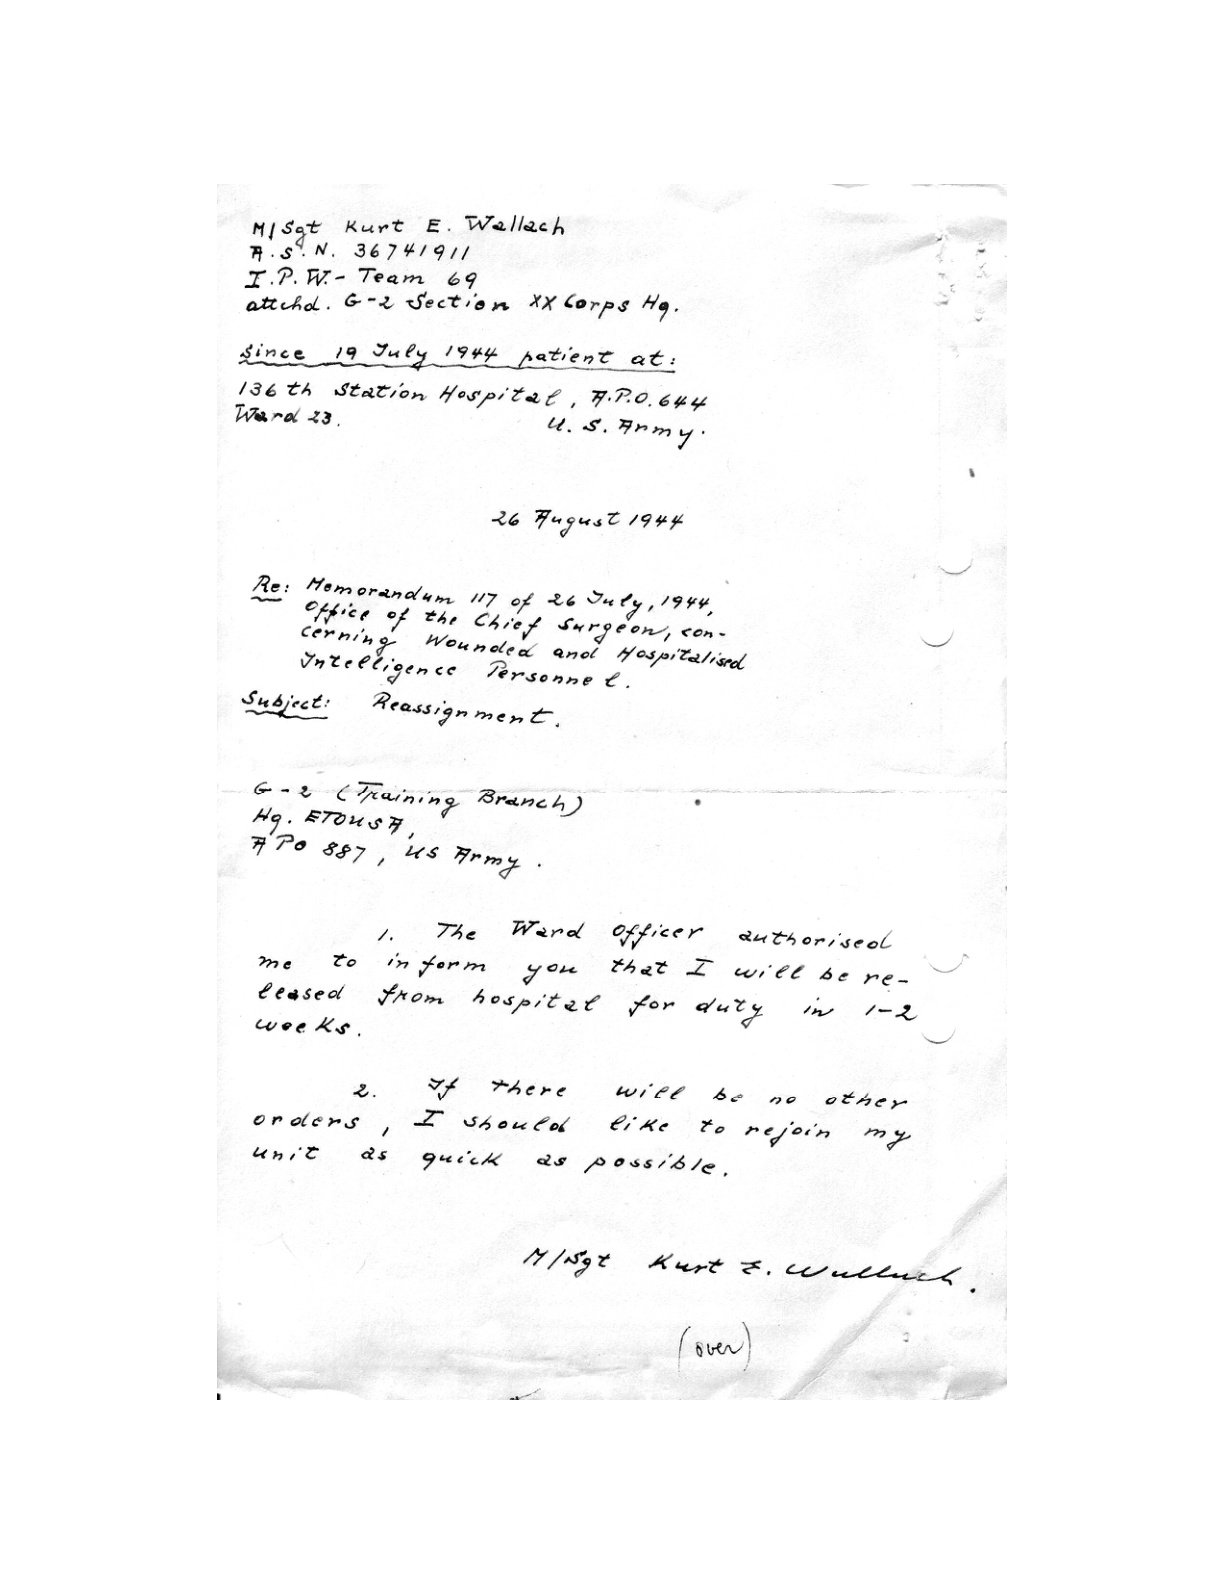 M/Sgt Kurt E. Wallach
A.S.N. 36741911
I.P.W.- Team 69
attchd. G-2 Section XX Corps Hq.
Since 19 July 1944 patient at:
136 th Station Hospital, A.P.O. 644
Ward 23. U. S. Army.
26 August 1944
Re: Memorandum 117 of 26 July, 1944,
Office of the Chief Surgeon, con-
cerning Wounded and Hospitalised
Intelligence Personnel.
Subject: Reassignment.
G-2 (Training Branch)
Hq. ETOUSA,
APO 887, US Army.
1. The Ward Officer authorised
me to inform you that I will be re-
leased from hospital for duty in 1-2
weeks.
2. If there will be no other
orders, I should like to rejoin my
unit as quick as possible.
M/Sgt Kurt E. Wallach.
(over)